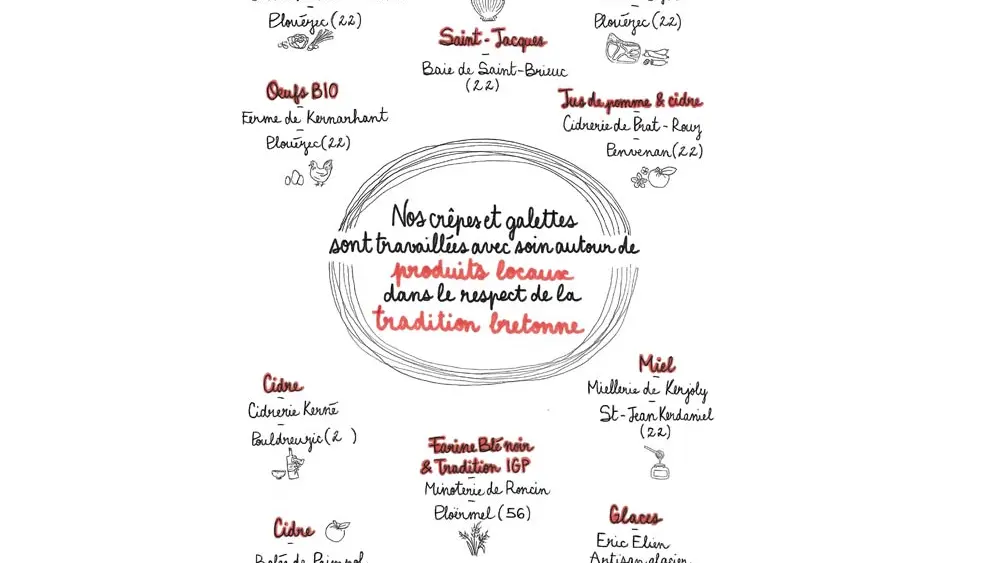 Plouézec (22)
Plouézec (22)
Saint-Jacques
-
Baie de Saint-Brieuc
(22)
Œufs BIO
-
Ferme de Kernarhant
-
Plouézec (22)
Jus de pomme & cidre
-
Cidrerie de Prat-Rouy
-
Penvenan (22)
Nos crêpes et galettes
sont travaillées avec soin autour de
produits locaux
dans le respect de la
tradition bretonne
Cidre
-
Cidrerie Kerné
-
Pouldreuzic (2 )
Miel
-
Miellerie de Kerjoly
-
St-Jean Kerdaniel
(22)
Farine Blé noir
& Tradition IGP
-
Minoterie de Roncin
-
Ploërmel (56)
Cidre
-
Bolée de Paimpol
Glaces
-
Eric Elien
Artisan glacier